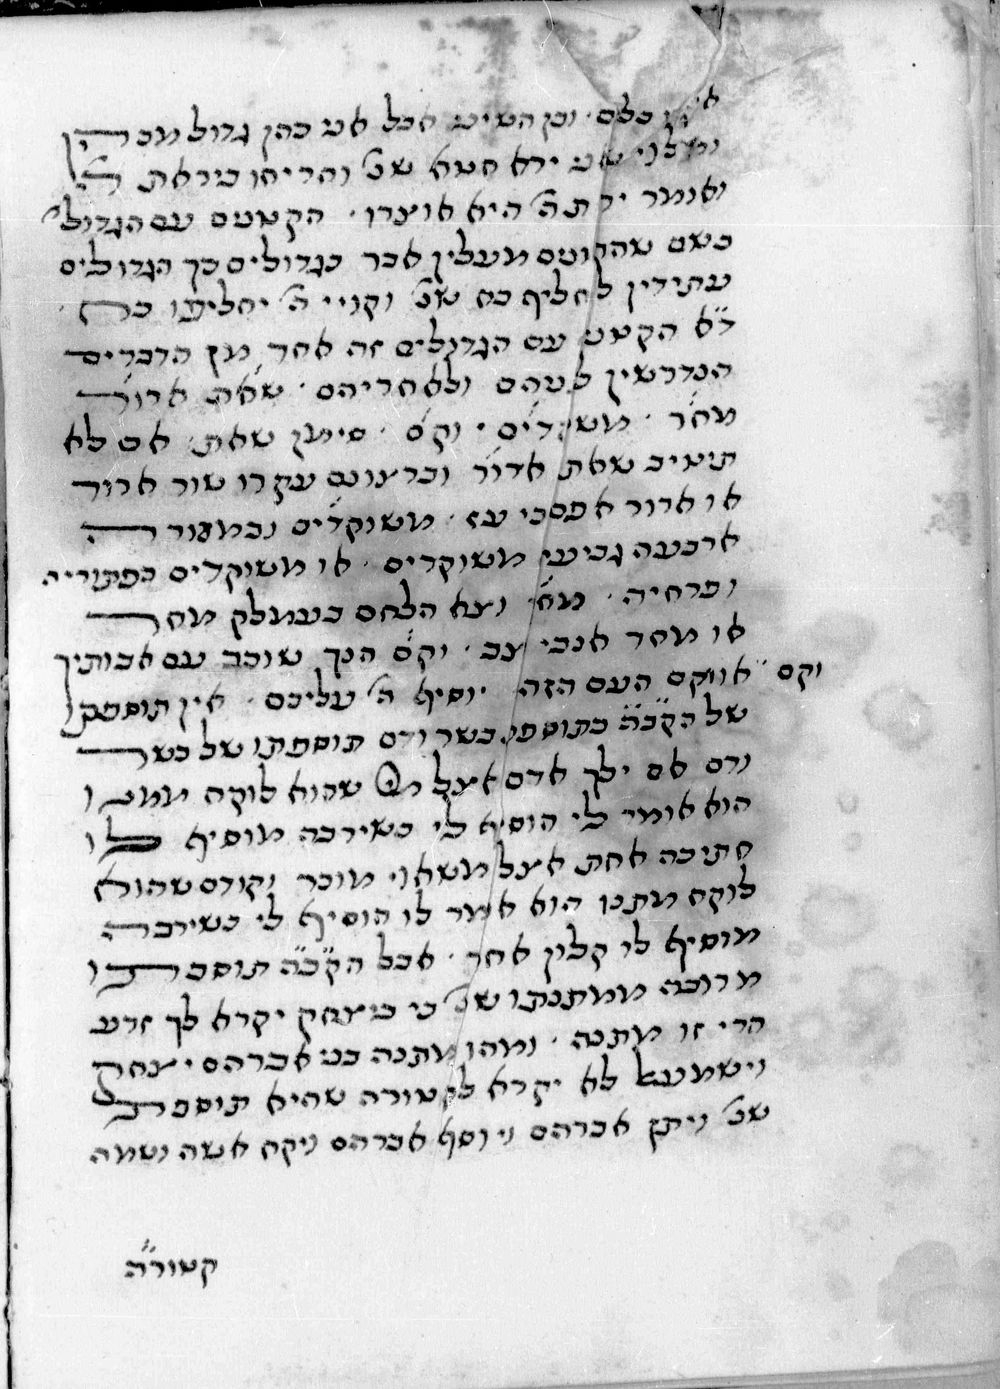 כלם · וכן השיב אבל אם כהן גדול מכהן
שנ׳ ירא חטא שנ׳ והריחו ביראת ה׳
ואומר יראת ה׳ היא אוצרו · הקטנים עם הגדולי׳
כשם שהקוטם מעלין אבר כגדולים כך הגדולים
עתידין להליף כח שנ׳ וקויי ה׳ יחליפו כח ·
ד״א הקטנים עם הגדולים זה אחד מן הדברים
הנדרשין לפניהם ולאחריהם · שאת ארור
מחר · משוקדים · וקם · סימן שאת · אם לא
תיטיב שאת ארור וכרצונם עקרו שור ארור
או ארור אפם כי עז · משוקדים ובמנורה
ארבעה גביעי׳ משוקדים · או משוקדים כפתוריה
ופרחיה · מחר וצא הלחם בעמלק מחר
או מחר אנכי נצב · וקם הנך שוכב עם אבותיך
וקם או וקם העם הזה יוסיף ה׳ עליכם · אין תוספתו
של הק״בה כתוספת בשר ודם תוספתו של בשר
ודם אם ילך אדם אצל שהוא לוקח ממנו
הוא אומר לו הוסיף לי כשירבה מוסיף לו
חתיכה אחת אצל משאוי מוכר וקודם שהוא
לוקח מתנו הוא אומר לו הוסיף לי כשירבה
מוסיף לו קלון אחר · אבל הק״בה תוספתו
מרובה ממתנתו שנ׳ כי ביצחק יקרא לך זרע
הרי זו מתנה · ומהו מתנה בני אברהם יצחק
וישמעאל לא יקרא לקטורה שהיא תוספת
שנ׳ ויתן אברהם ויוסף אברהם ויקח אשה ושמה
קטור״ה